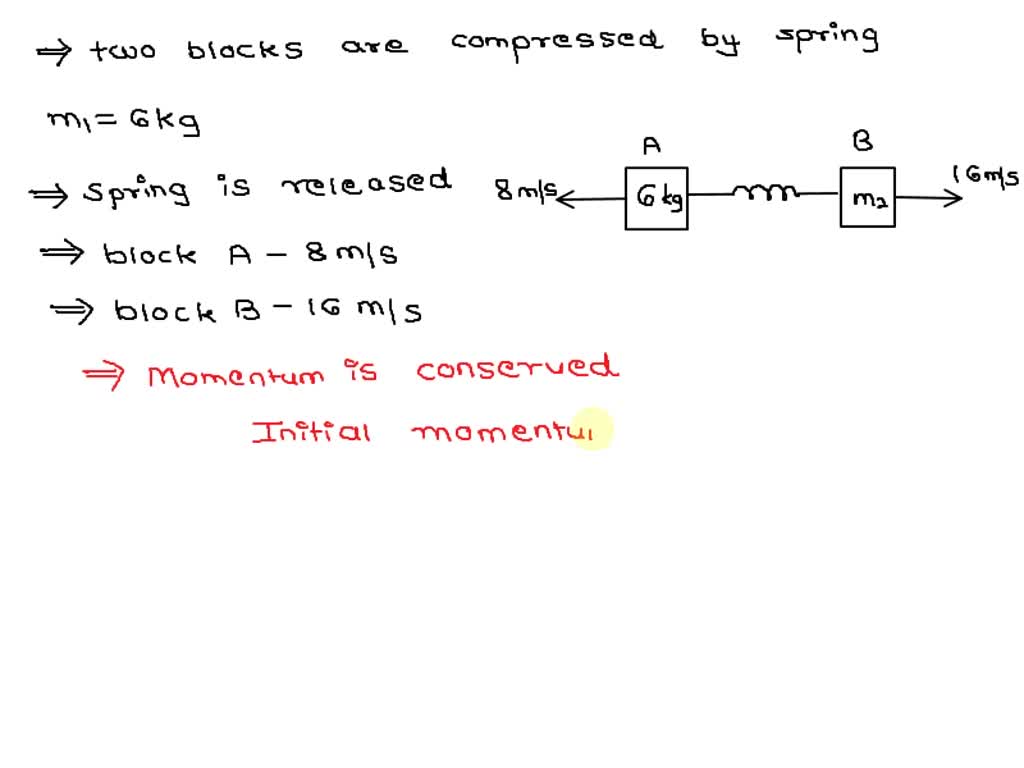 ⇒ two blocks are compressed by spring
m₁ = 6kg
⇒ Spring is released
⇒ block A - 8 m/s
⇒ block B - 16 m/s
A
B
8 m/s
6 kg
m₂
16 m/s
⇒ Momentum is conserved
Initial momentu